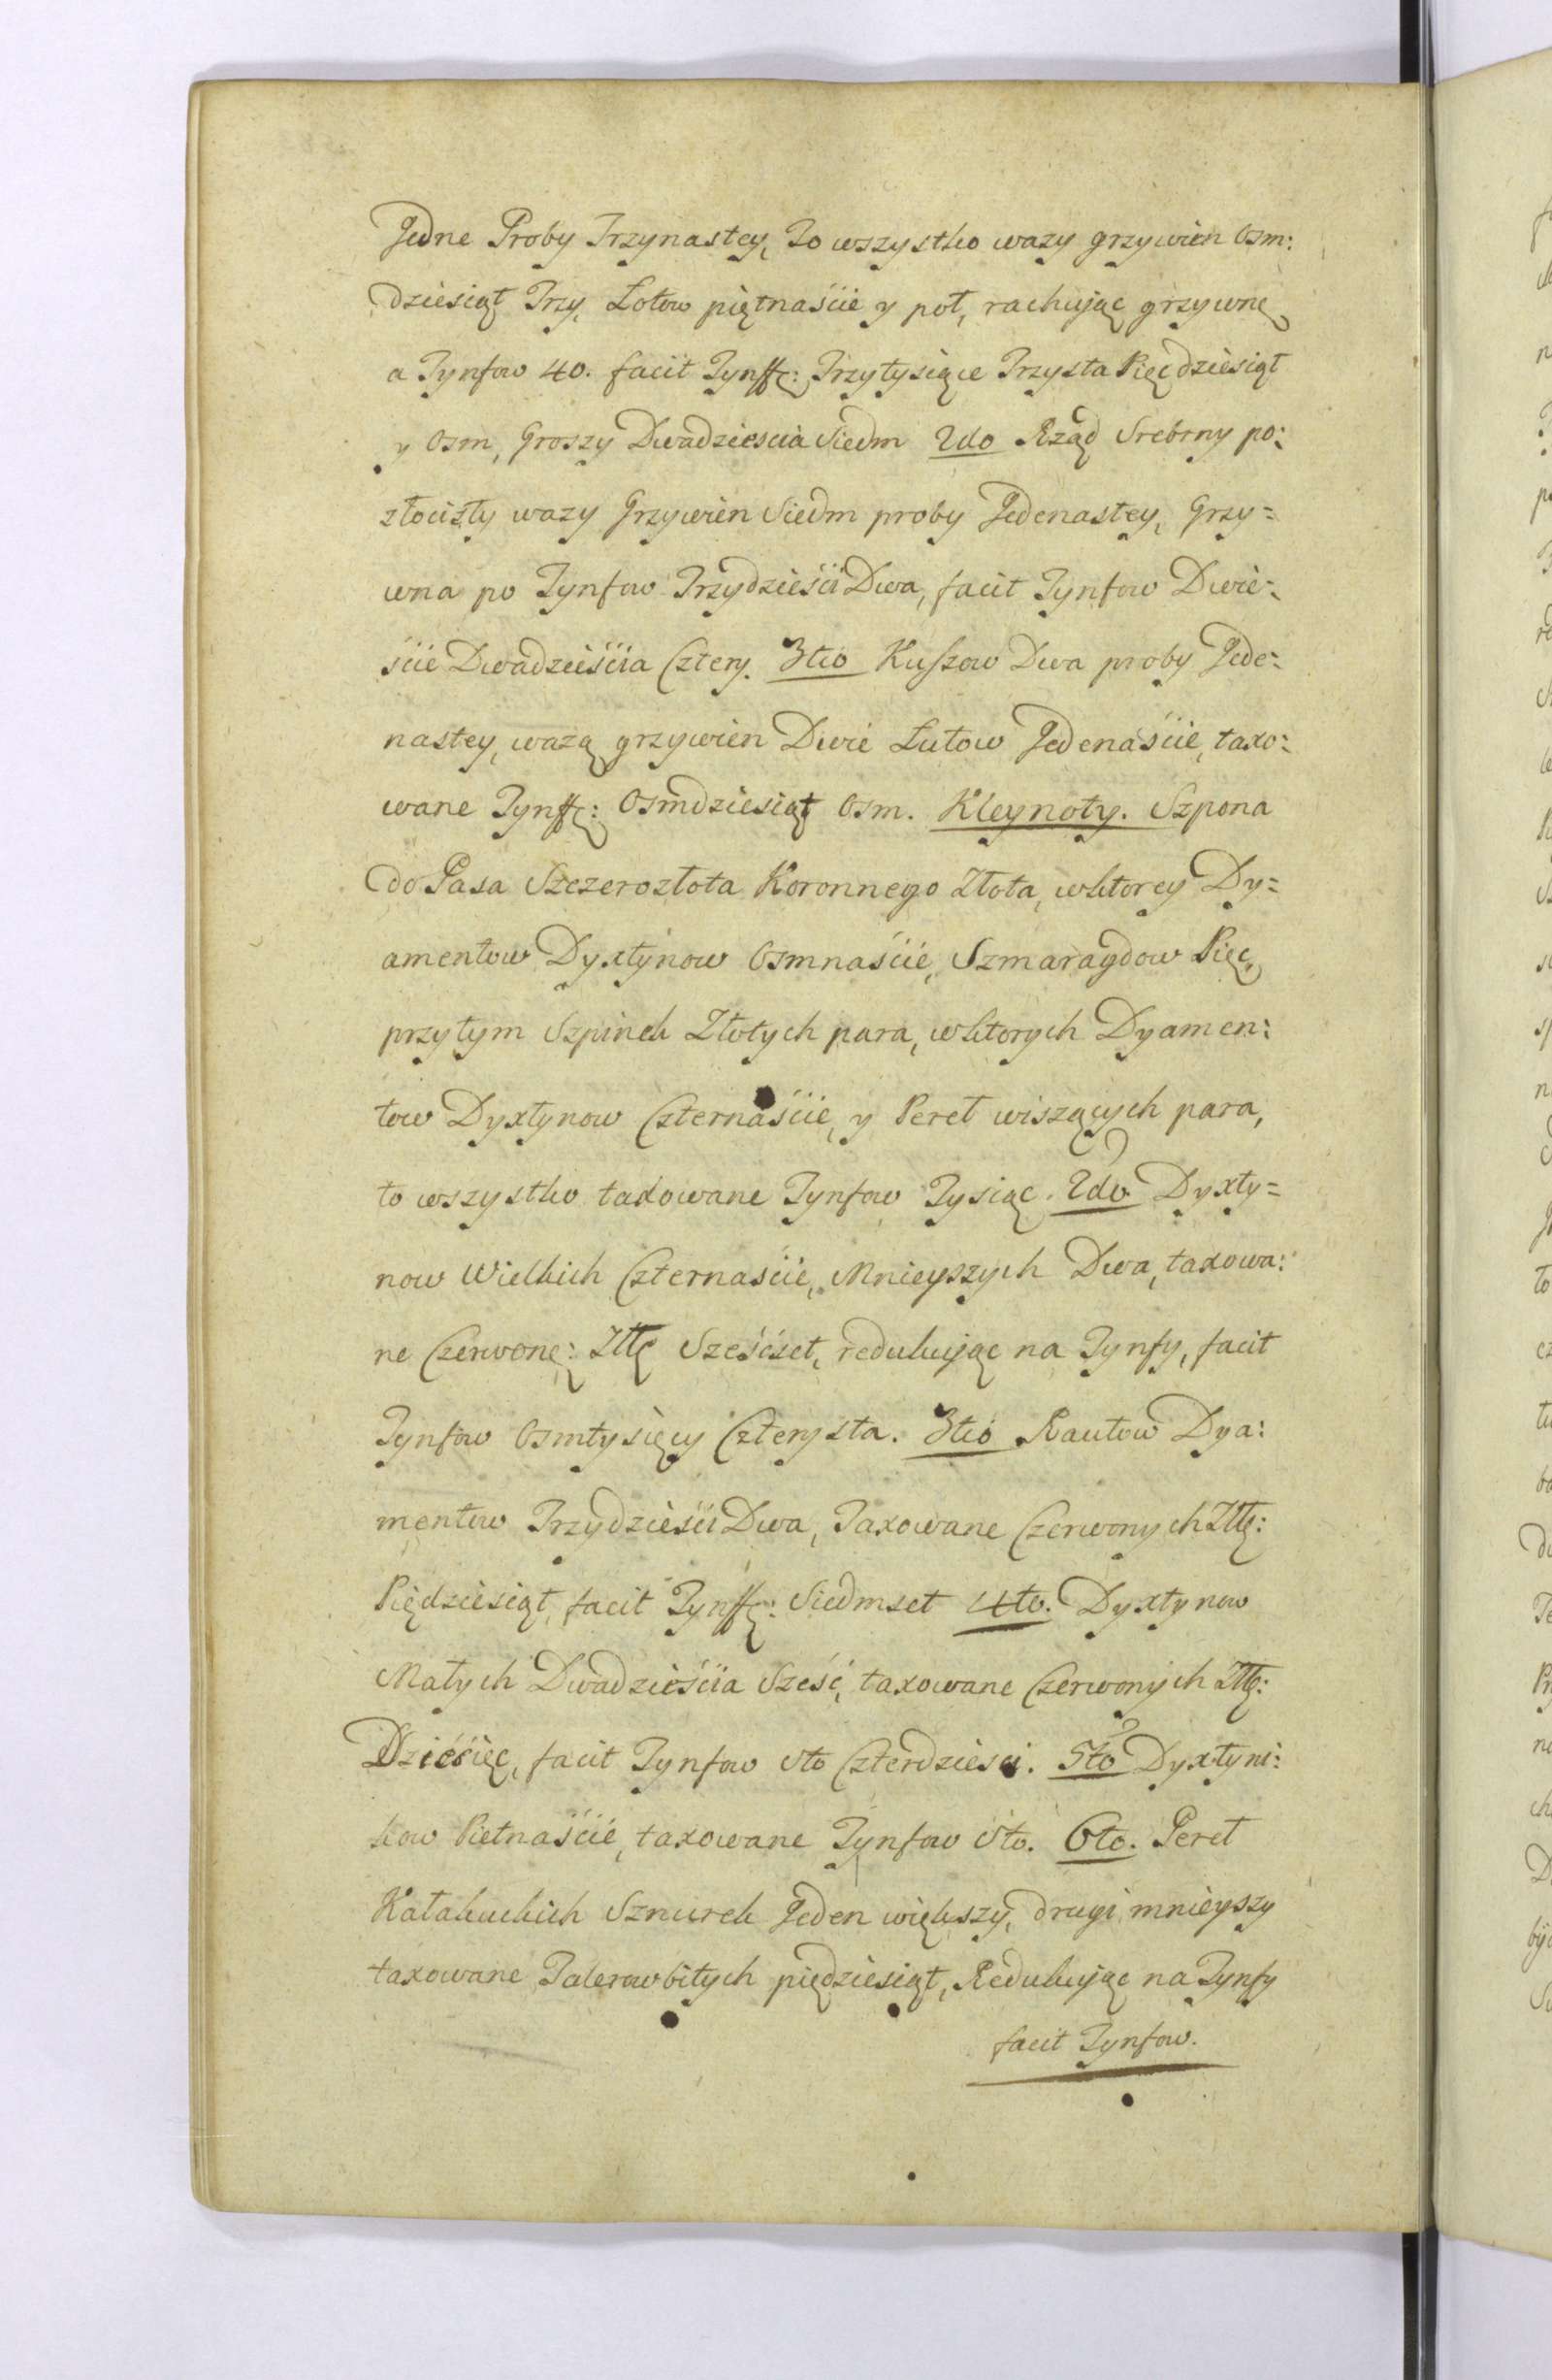 Jedne Proby Trzynastey, To wszystko wazy grzywien Osm:
dziesiąt Trzy, Lotow piętnaście y poł, rachując grzywnę
a Tynfow 40. facit Tynff: Trzytysiące Trzysta Pięcdziesiąt
y Osm, Groszy Dwadziescia Siedm 2do Rząd Srebrny po:
złocisty wazy Grzywien Siedm proby Jedenastey, Grzy=
wna po Tynfow Trzydzieści Dwa, facit Tynfow Dwie=
ście Dwadzieścia Cztery. 3tio Kuszow Dwa proby Jede=
nastey, ważą grzywien Dwie Łutow Jedenaście, taxo:
wane Tynff: Osmdziesiąt Osm. Kleynoty. Szpona
do Pasa Szczerozłota Koronnego Złota, wktorey Dy=
amentow Dyxtynow Osmnaście, Szmaragdow Pięc,
przytym Szpinek Złotych para, wktorych Dyamen:
tow Dyxtynow Czternaście, y Pereł wiszących para,
to wszystko taxowane Tynfow Tysiąc. 2do. Dyxty=
now Wielkich Czternaście, Mnieyszych Dwa, taxowa:
ne Czerwone: Złł Sześćset, redukując na Tynfy, facit
Tynfow Osmtysięcy Czterysta. 3tio Rautow Dya:
mentow Trzydzieści Dwa, Taxowane Czerwonych Złł:
Pięcdziesiąt, facit Tynff: Siedmset 4to. Dyxtynow
Małych Dwadzieścia Sześć, taxowane Czerwonych Złł:
Dziesięc, facit Tynfow Sto Czterdziesci. 5to Dyxtyni:
kow Pietnaście, taxowane Tynfow Sto. 6to. Pereł
Kałakuckich Sznurek Jeden większy, drugi mnieyszy
taxowane Talerow bitych pięcdziesiąt, Redukując na Tynfy
facit Tynfow.